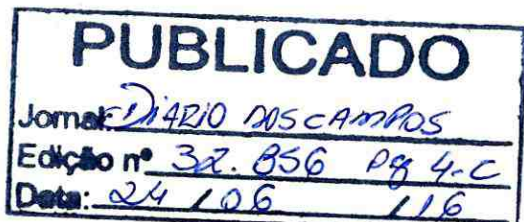 PUBLICADO
Jornal: DiARIO DOS CAMPOS
Edição nº 32.856 Pg 4-C
Data: 24 / 06 / 16